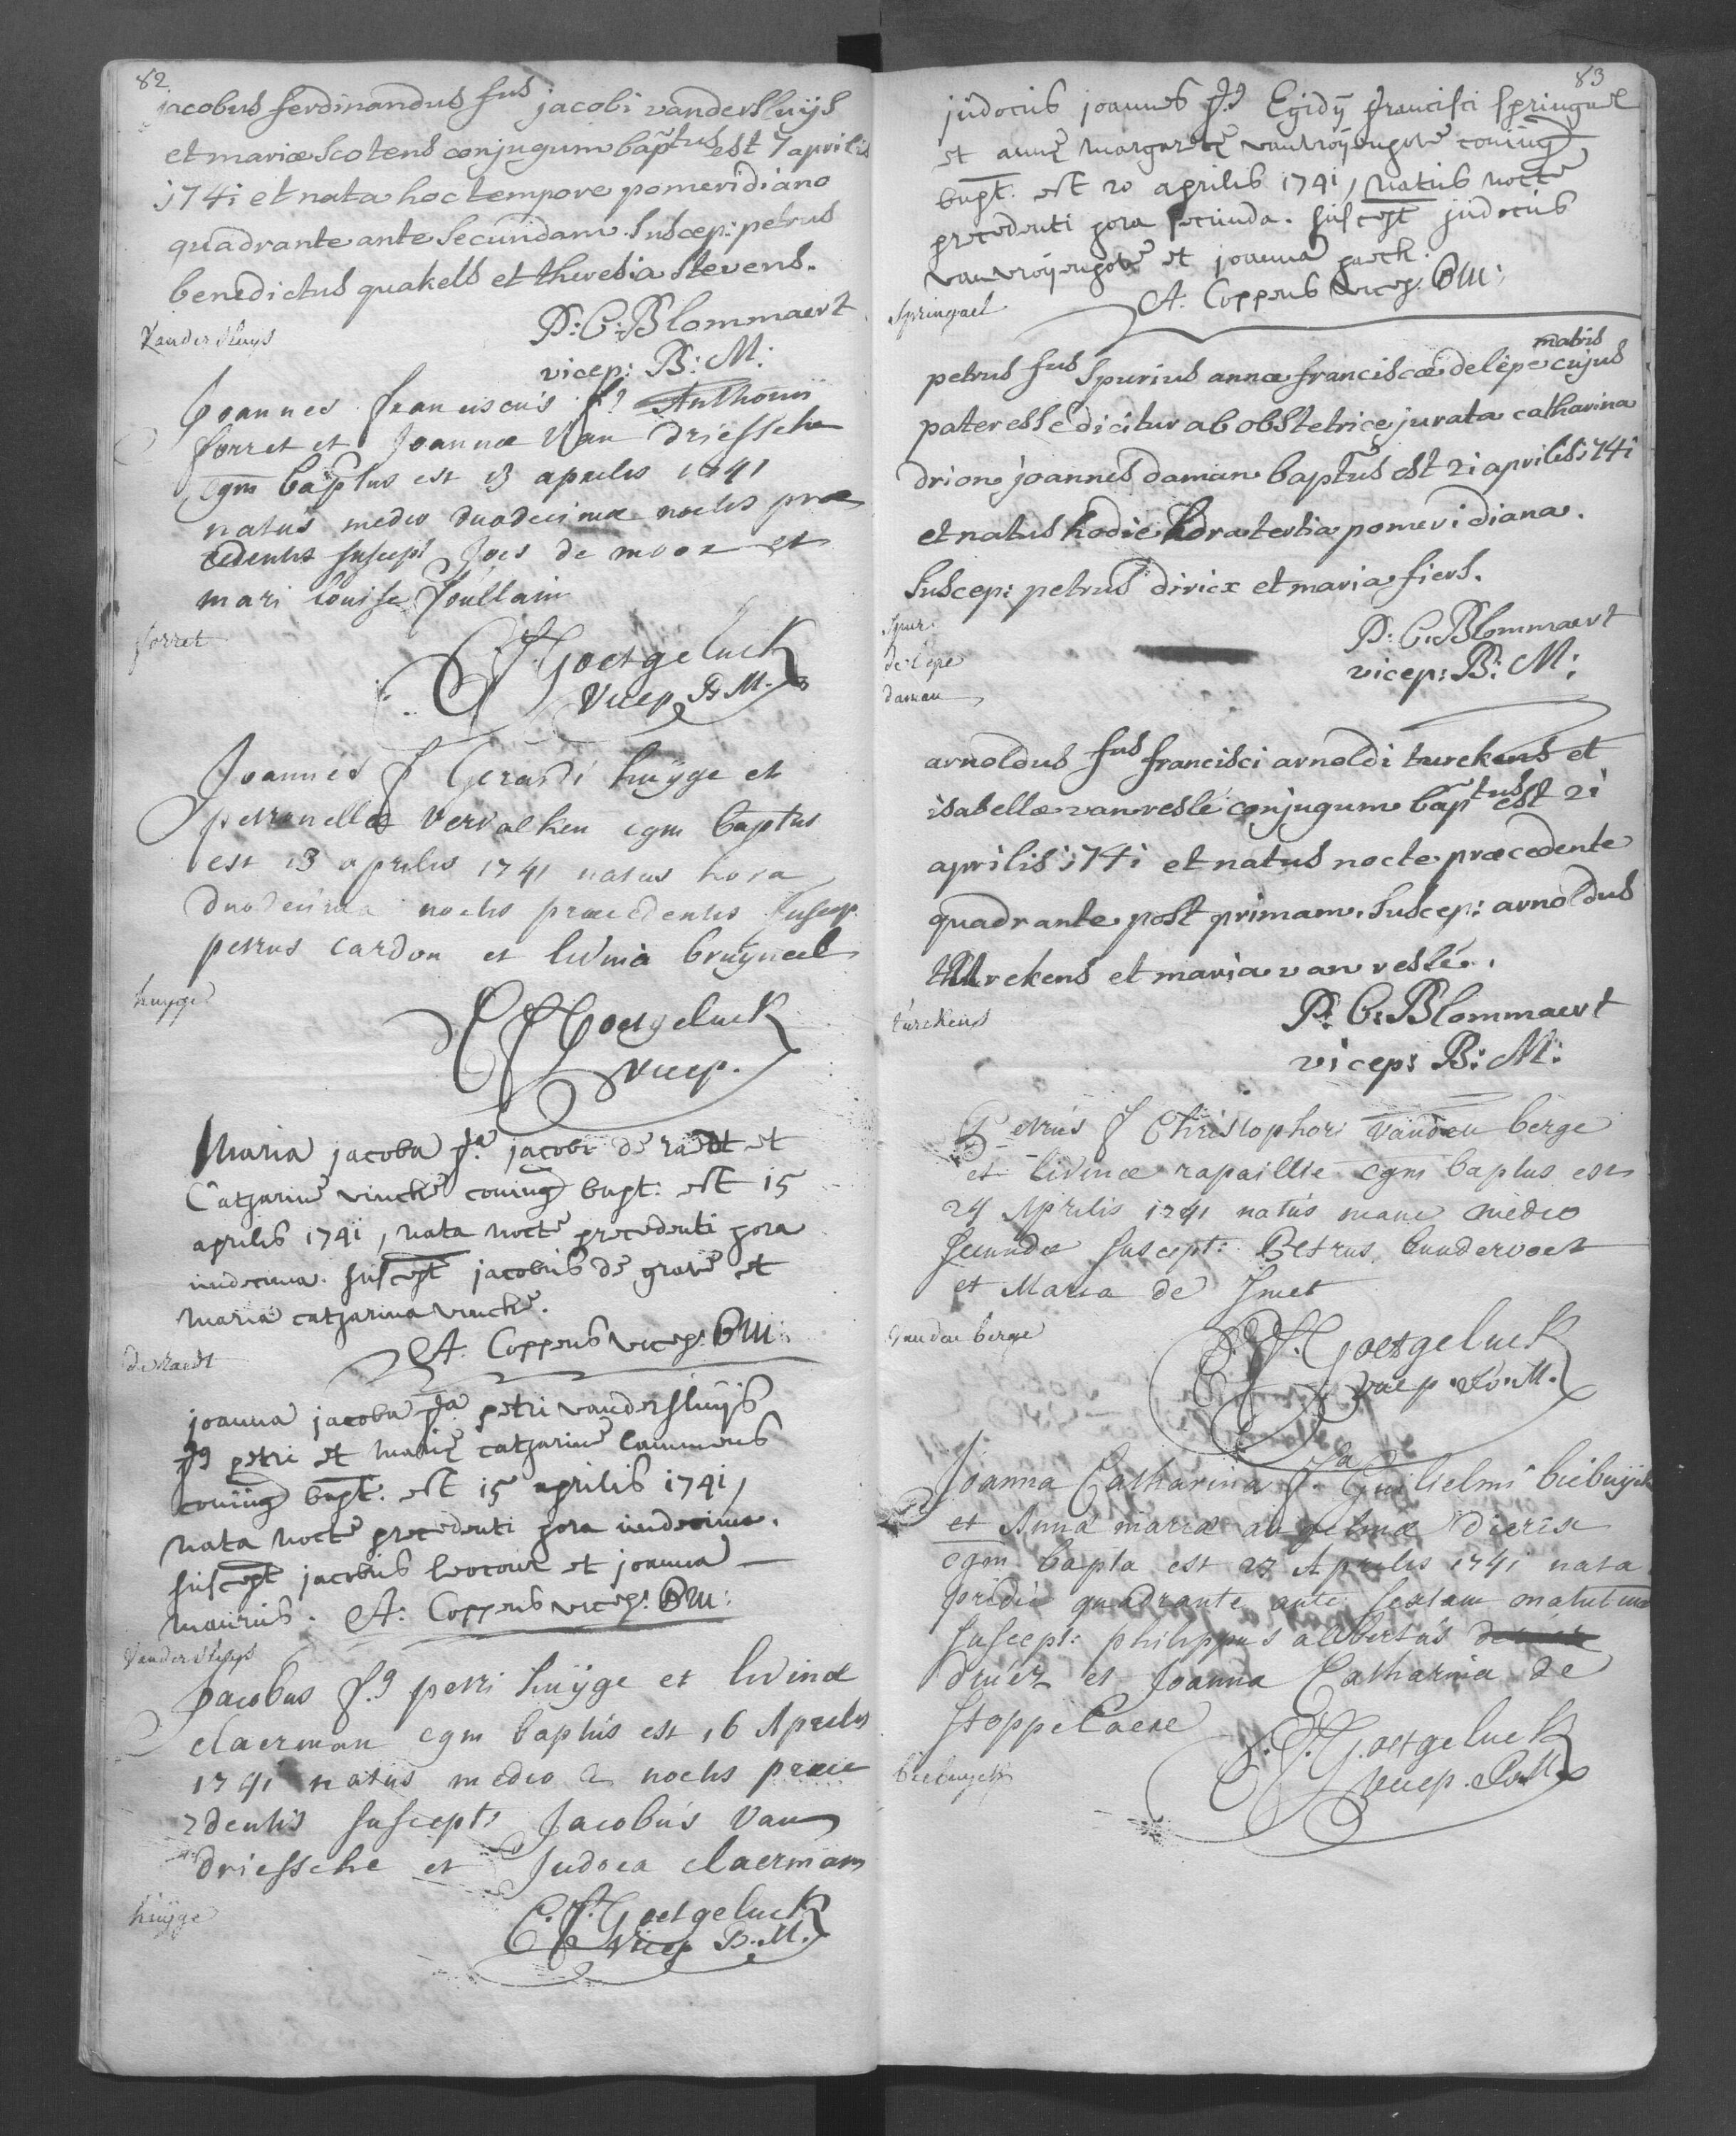 82
jacobus ferdinandus fus jacobi vandersluijs
et mariæ scotens conjugum baptus est 7 aprilis
1741 et nata hoc tempore pomeridiano
quadrante ante secundam. suscep: petrus
benedictus quakels et theresia stevens.
P: C: Blommaert
vicep: B: M:
Vandersluijs
Joannes franciscus fs Anthonii
forret et Joannæ Van driessche
cgm baptus est 13 aprilis 1741
natus medio duodecimæ noctis præ
cedentis suscept Joes de moor et
mari louise foullain
forret
J Goetgeluck
Vicep B. M.
Joannes f Gerardi huijge et
petronellæ Vervalken cgm baptus
est 13 aprilis 1741 natus hora
duodecima noctis præcedentis suscep
petrus cardon et livina bruijneel
huijge
J Goetgeluck
Vicep.
Maria jacoba fa jacobi de raedt et
Catharine vincke coniug bapt: est 15
aprilis 1741, nata nocte precedenti hora
undecima. suscept jacobus de grave et
maria catharina vincke.
A. Coppens vicep. BM:
de raedt
joanna jacoba fa petri vandersluijs
fs petri et marie catharine lammens
coniug bapt. est 15 aprilis 1741,
nata nocte precedenti hora undecima.
suscept jacobus lecocur et joanna
maurus. A: Coppens vicep. BM:
Vandersluijs
Jacobus fs petri huijge et livinæ
claerman cgm baptus est 16 Aprilis
1741 natus medio 2 noctis præce
dentis suscept: Jacobus Van
driessche et Judoca claerman
huijge
C. J. Goetgeluck
Vicep B. M.
83
judocus joannes fs Egidij francisci springael
et anne margarete vanvroijenhove coniug
bapt. est 20 aprilis 1741, natus nocte
precedenti hora secunda. suscept judocus
vanvroijenhove et joanna
A. Coppens vicep. BM:
Springael
matris
petrus fus spurius annæ franciscæ delépe cujus
pater esse dicitur ab obstetrice jurata catharina
drion joannes daman baptus est 21 aprilis 1741
et natus hodie hora tertia pomeridiana.
Suscep: petrus diricx et maria fiers.
P: C: Blommaert
vicep: B: M:
Spur:
delépe
daman
arnoldus fus francisci arnoldi turekens et
isabellæ van reslé conjugum baptus est 21
aprilis 1741 et natus nocte præcedente
quadrante post primam. suscep: arnoldus
turekens et maria van reslé.
turekens
P: C: Blommaert
vicep: B: M:
Petrus f Christophori vanden berge
et livinæ rapaillie cgm baptus est
24 Aprilis 1741 natus mane medio
secundæ suscept: Petrus bundervoet
et Maria de Smet
vanden berge
C. J. Goetgeluck
Vicep. B. M.
Joanna Catharina fa Guilielmi biebuijck
et Anna mariæ angelinæ dierix
cgm bapta est 27 Aprilis 1741 nata
pridie quadrante ante sextam matutina
suscept: philippus albertus
druez et Joanna Catharina de
stoppelaere
biebuijck
C. J. Goetgeluck
Vicep. B. M.